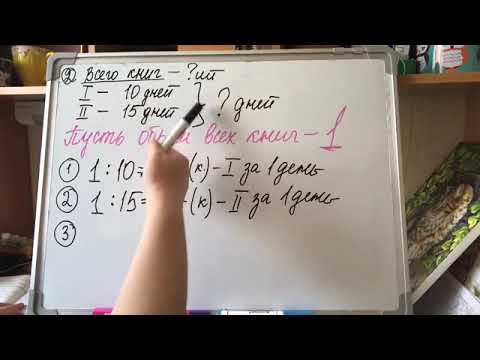 ② Всего книг - ? шт
I - 10 дней
II - 15 дней } ? дней
Пусть всех книг - 1
① 1 : 10 = (к) - I за 1 день
② 1 : 15 = (к) - II за 1 день
③